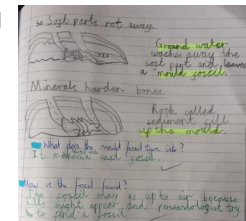 Soft parts rot away
Ground water
washes away the
soft part and leaves
a mould fossil.
Minerals harden bones.
Rock called
sediment fill
up the mould.
What does the mould fossil turn into?
It a cast fossil.
How is the fossil found?
The fossil may go up to us because
might appear and try
to find a fossil